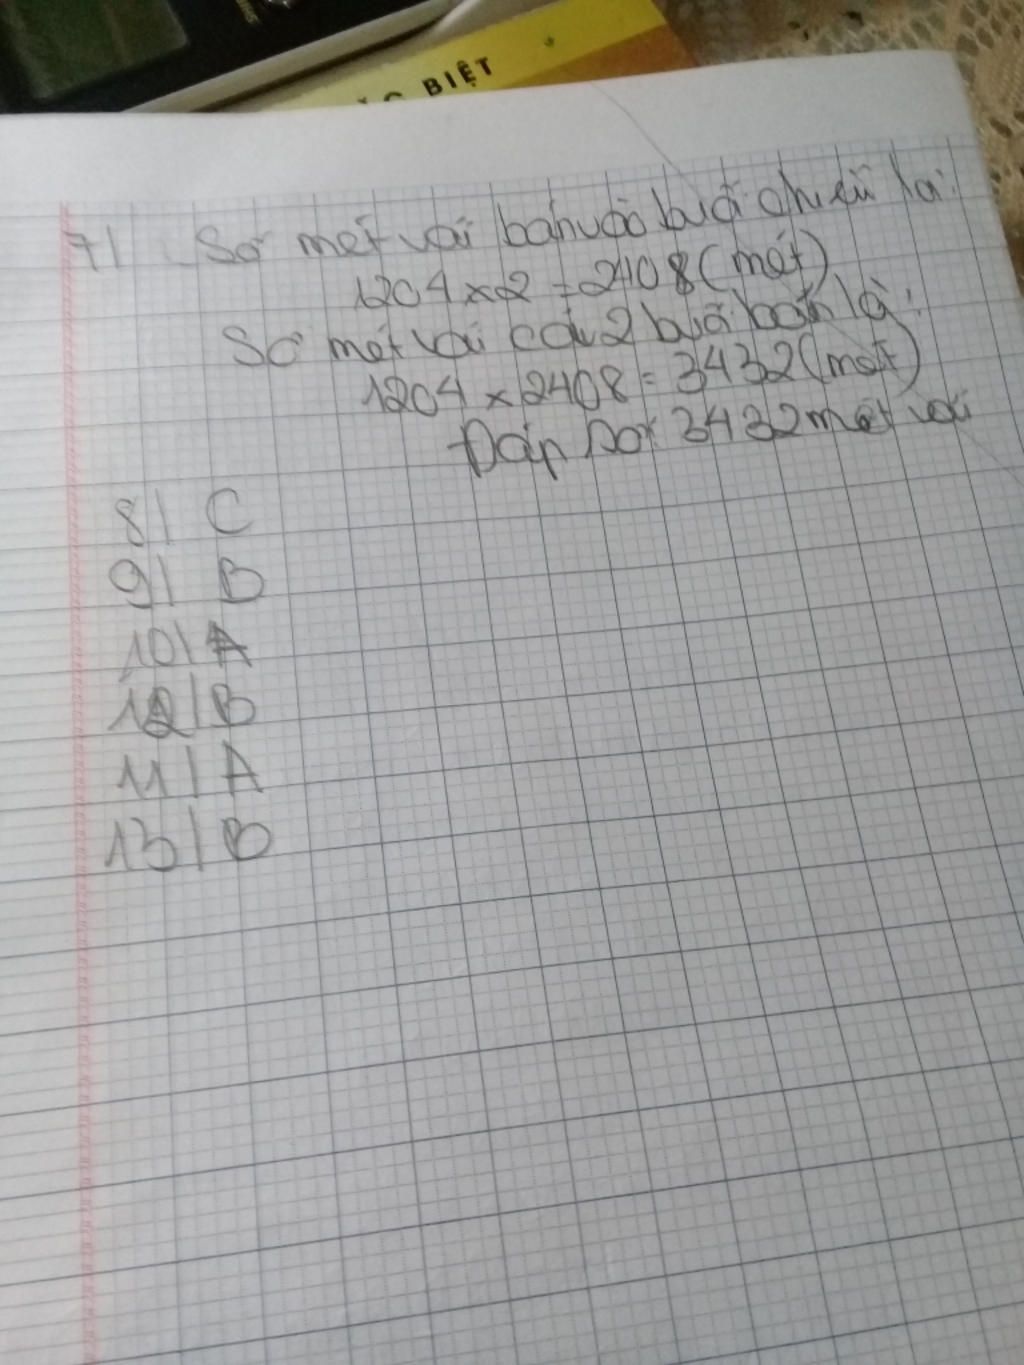 BIỆT
7| Số mét vải bán vào buổi chiều là:
1204 x 2 = 2408 (mét)
Số mét vải cả 2 buổi bán là:
1204 x 2408 = 3432 (mét)
Đáp số: 3432 mét vải
8| C
9| B
10| A
12| B
11| A
13| B